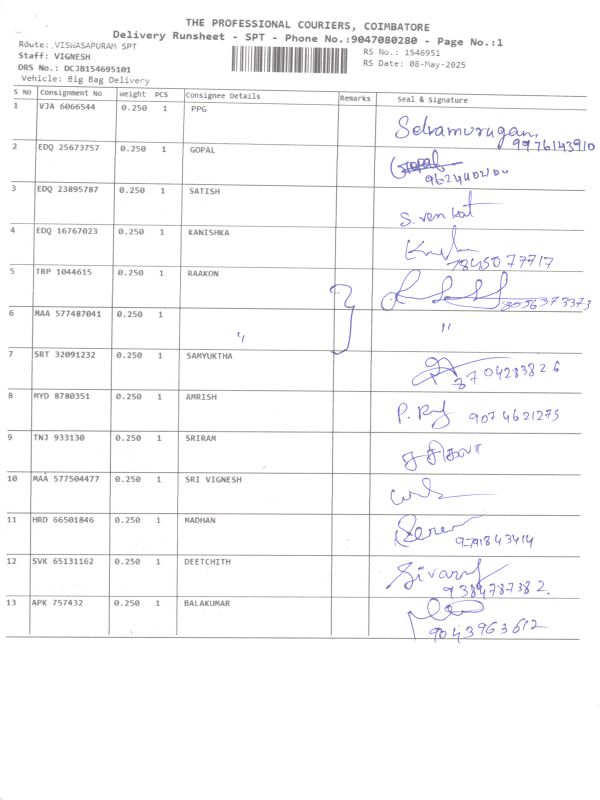 THE PROFESSIONAL COURIERS, COIMBATORE
Delivery Runsheet - SPT - Phone No.:9047080280 - Page No.:1
Route: VISWASAPURAM SPT
RS No.: 1546951
Staff: VIGNESH
RS Date: 08-May-2025
DRS No.: DCJB154695101
Vehicle: Big Bag Delivery
S NO Consignment No Weight PCS Consignee Details Remarks Seal & Signature
1 VJA 6066544 0.250 1 PPG Selvamurugan
9976143910
2 EDQ 25673757 0.250 1 GOPAL
3 EDQ 23895787 0.250 1 SATISH S. Venkat
4 EDQ 16767023 0.250 1 KANISHKA
7845077717
5 TRP 1044615 0.250 1 RAAKON
8056373373
6 MAA 577487041 0.250 1 " "
7 SRT 32091232 0.250 1 SAMYUKTHA
8704283826
8 MYD 8780351 0.250 1 AMRISH P. Raj 9074621275
9 TNJ 933130 0.250 1 SRIRAM சசிகலா
10 MAA 577504477 0.250 1 SRI VIGNESH
11 HRD 66501846 0.250 1 MADHAN
9791843414
12 SVK 65131162 0.250 1 DEETCHITH Sivaraj
9384787382.
13 APK 757432 0.250 1 BALAKUMAR
9043963612